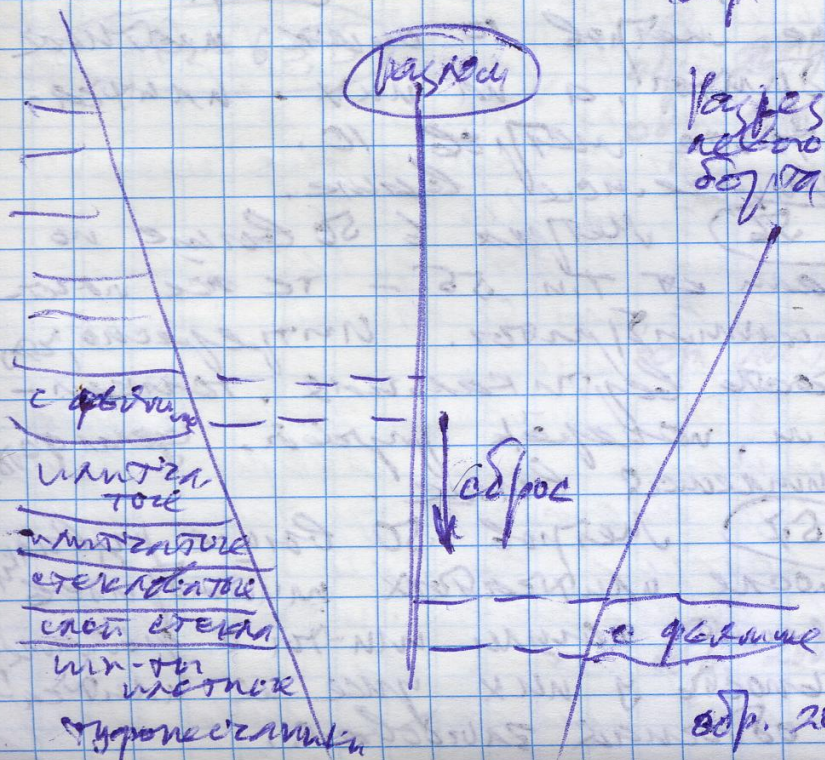 разлом
Разрез
левого
борта
с фьямме
плитча
тые
плитчатые
стекловатые
слой стекла
иг-ты
плотные
туфопесчаники
сброс
с фьямме
обр. 2